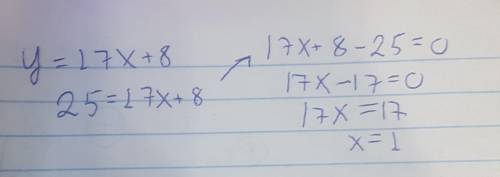 y=17x+8
25=17x+8
17x+8-25=0
17x-17=0
17x=17
x=1